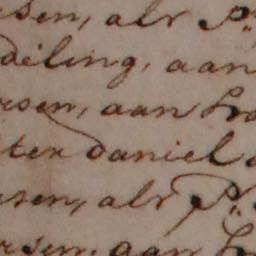 sen, als P:
deling, aan
sen, aan
ter daniel
sen, als P:
sen, aan